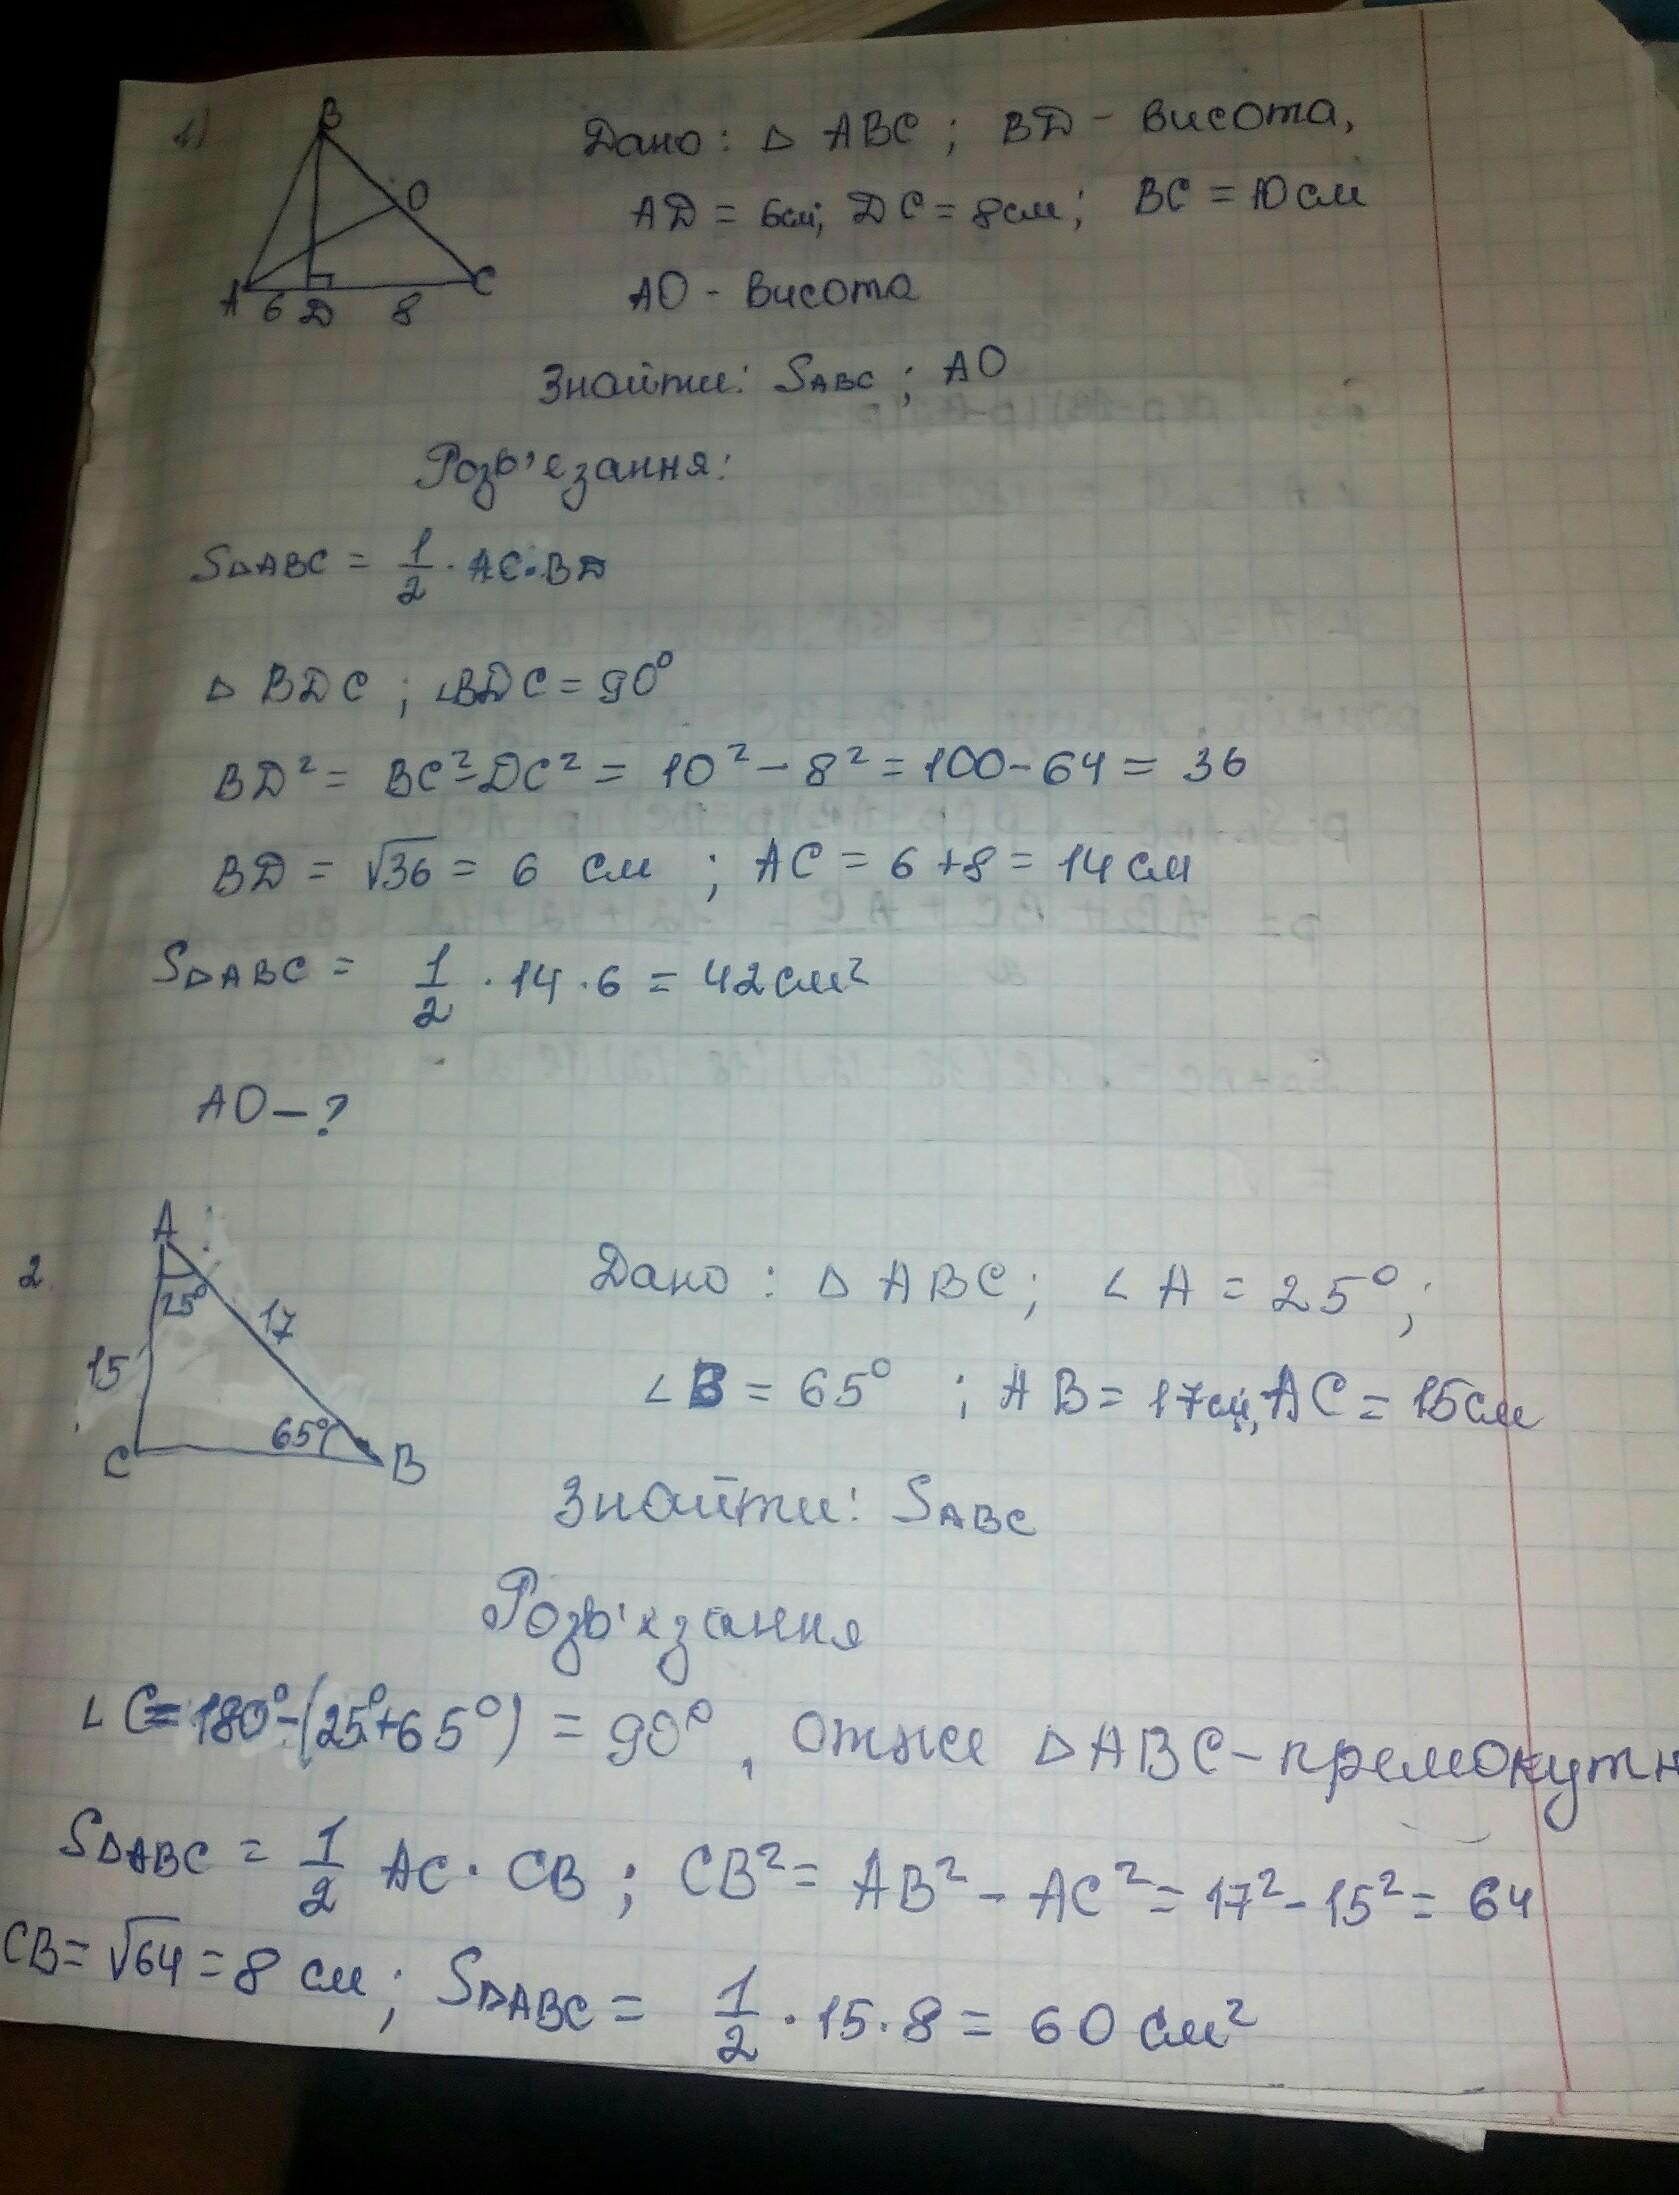 1)
B
O
A 6 D 8 C
Дано: △ ABC; BD - висота,
AD = 6см; DC = 8см; BC = 10см
AO - висота
Знайти: SABC; AO
Розв'язання:
S△ABC = 1/2 · AC·BD
△ BDC; ∠BDC = 90°
BD² = BC²-DC² = 10² - 8² = 100-64 = 36
BD = √36 = 6 см; AC = 6+8 = 14см
S△ABC = 1/2 · 14 · 6 = 42см²
AO - ?
2.
A
25°
17
15
65°
C B
Дано: △ ABC; ∠ A = 25°;
∠ B = 65°; AB = 17см, AC = 15см
Знайти: SABC
Розв'язання
∠ C = 180° - (25°+65°) = 90°, отже △ABC - премокутн
S△ABC = 1/2 AC · CB; CB² = AB² - AC² = 17² - 15² = 64
CB = √64 = 8 см; S△ABC = 1/2 · 15 · 8 = 60 см²